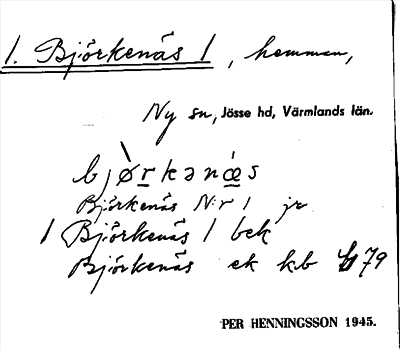 1. Björkenäs 1, hemman,
Ny sn, Jösse hd, Värmlands län.
bjø̀rkənǽs
Björkenäs N:r 1 jr
1 Björkenäs 1 bek
Björkenäs ek kb 79
PER HENNINGSSON 1945.